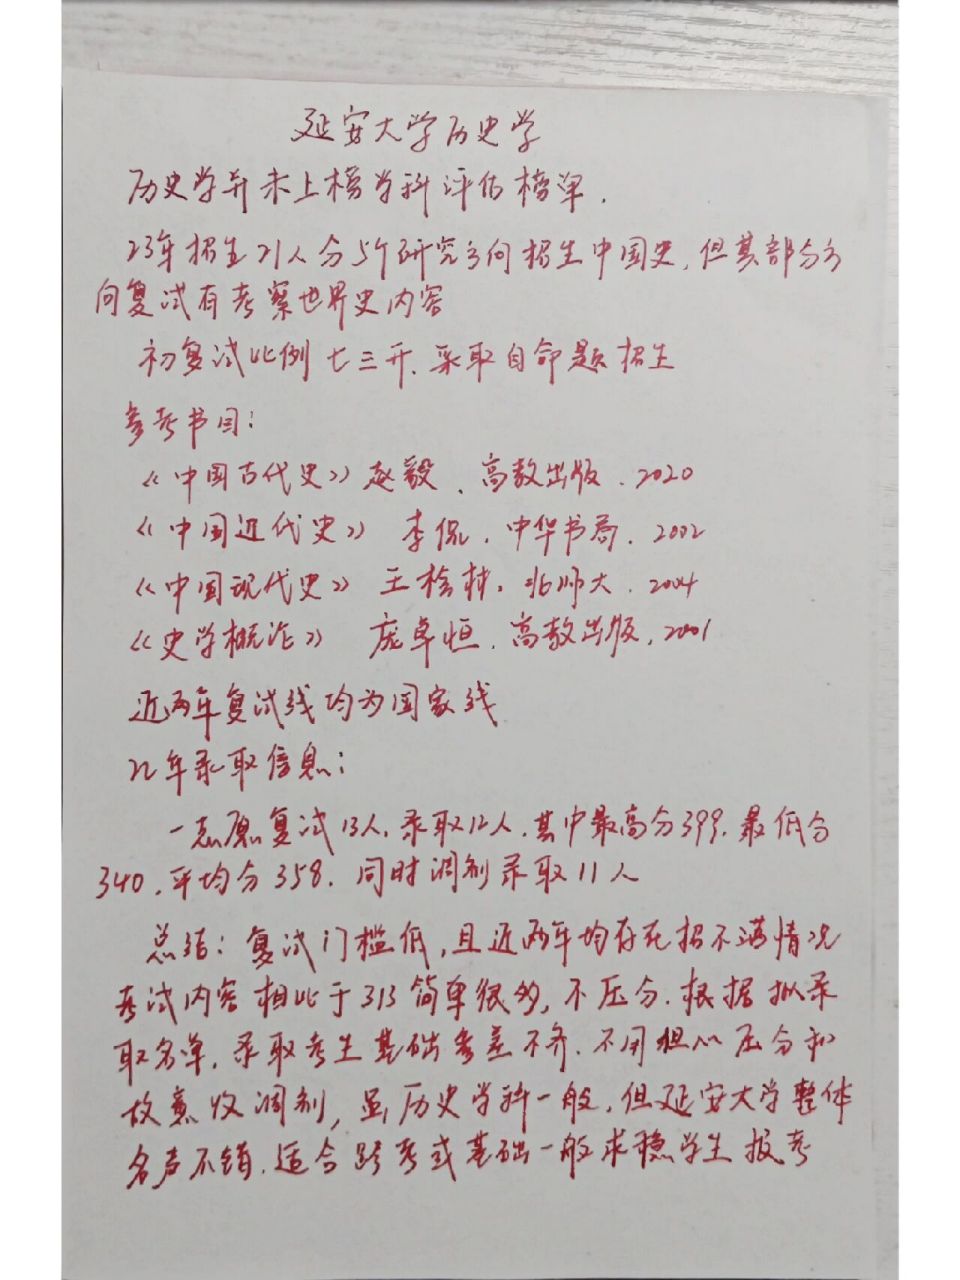 延安大学历史学
历史学并未上榜学科评估榜单.
23年招生21人分5个研究方向招生中国史,但其部分方
向复试有考察世界史内容
初复试比例七三开.采取自命题招生
参考书目:
《中国古代史》赵毅、高教出版.2020
《中国近代史》 李侃.中华书局.2002
《中国现代史》 王桧林.北师大.2004
《史学概论》 庞卓恒.高教出版.2001
近两年复试线均为国家线
22年录取信息:
一志愿复试13人.录取12人.其中最高分399.最低分
340.平均分358.同时调剂录取11人
总结:复试门槛低,且近两年均存在招不满情况
考试内容相比于313简单很多,不压分.根据拟录
取名单,录取考生基础参差不齐.不用担心压分和
故意收调剂,虽历史学科一般,但延安大学整体
名声不错.适合跨考或基础一般求稳学生报考